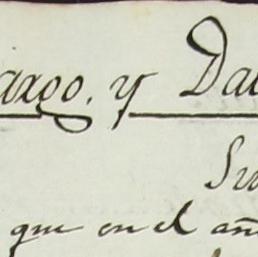 argo. y Da
Su
que en el añ